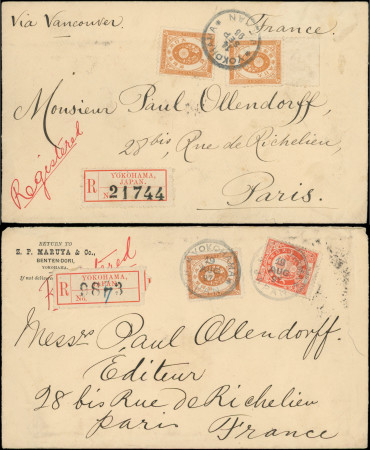 Via Vancouver.
France.
YOKOHAMA
SEP
JAPAN
Monsieur Paul Ollendorff,
28 bis, Rue de Richelieu,
Registered
YOKOHAMA,
JAPAN.
R No. 21744
Paris.
RETURN TO
Z. P. MARUYA & Co.,
BENTENDORI,
YOKOHAMA,
If not delivered
YOKOHAMA
YOKOHAMA,
JAPAN.
R No. 9873
Messrs Paul Ollendorff.
Editeur
28 bis Rue de Richelieu
Paris
France